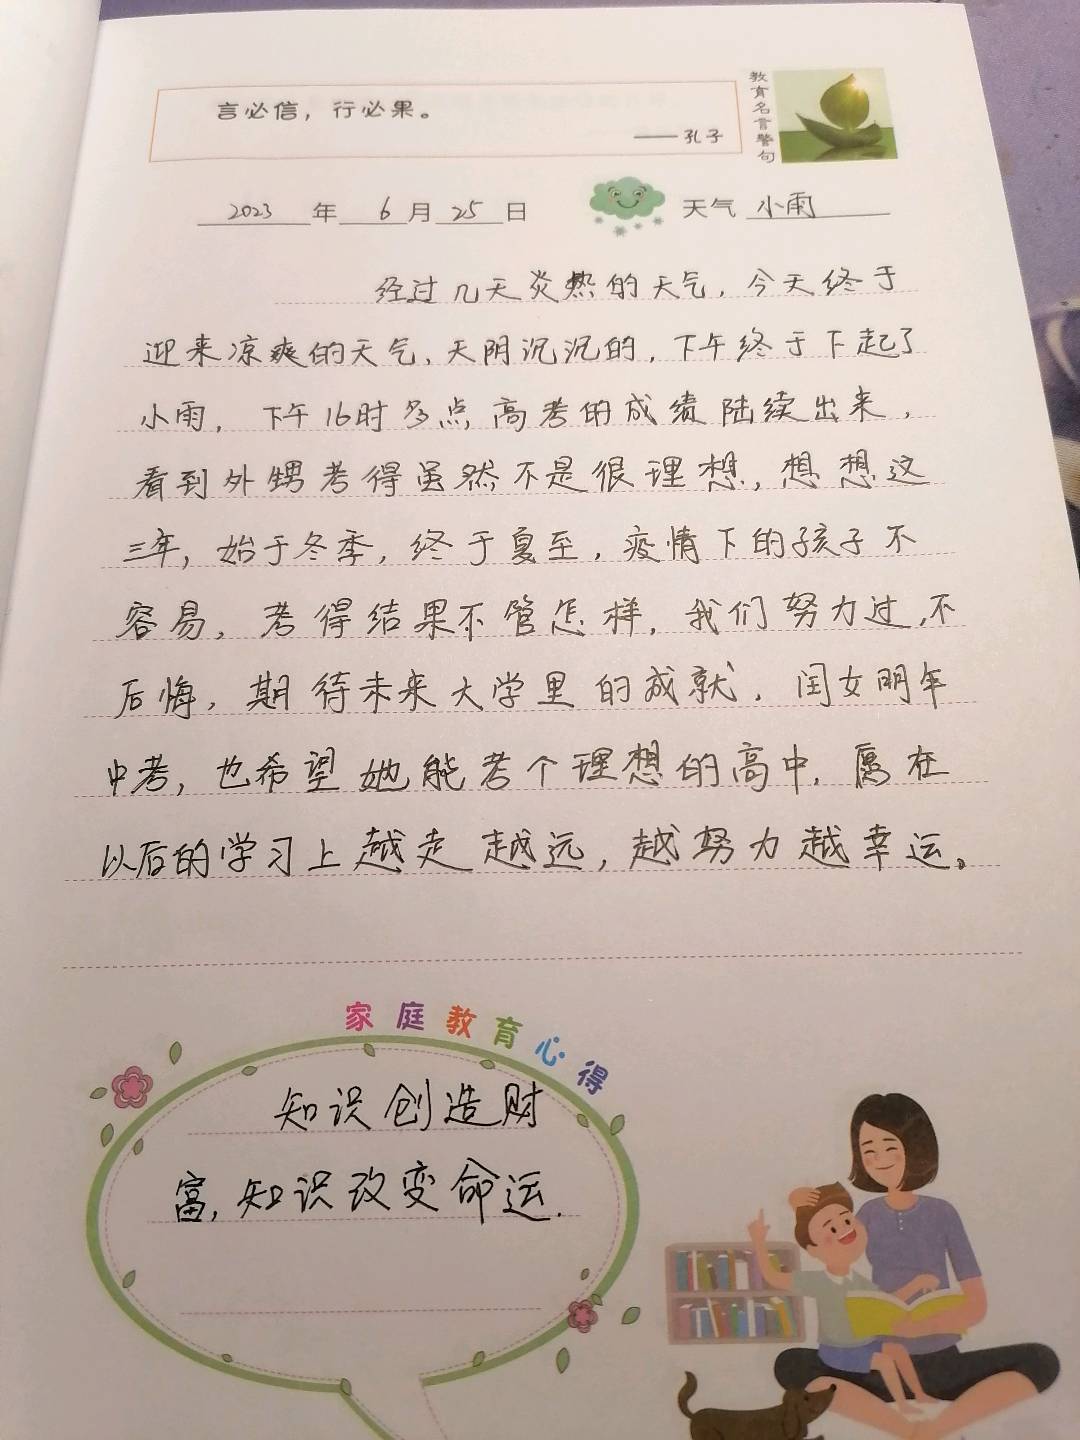 言必信，行必果。
——孔子
教育名言警句
2023年6月25日 天气 小雨
经过几天炎热的天气，今天终于
迎来凉爽的天气、天阴沉沉的，下午终于下起了
小雨，下午16时多点高考的成绩陆续出来，
看到外甥考得虽然不是很理想，想想这
三年，始于冬季，终于夏至，疫情下的孩子不
容易，考得结果不管怎样，我们努力过，不
后悔，期待未来大学里的成就．闺女明年
中考，也希望她能考个理想的高中．愿在
以后的学习上越走越远，越努力越幸运。
家庭教育心得
知识创造财
富，知识改变命运．